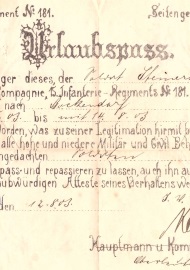 ment No 181. Seitenge
Urlaubspass.
ger dieses, der Soldat
Compagnie, 15. Infanterie-Regiments No 181.
nach
03. bis mit 14.8.03
orden, was zu seiner Legitimation hiermit b
alle hohe und niedere Militär und Civil Beh
ngedachten Soldaten
pass- und repassieren zu lassen, auch ihn au
ubwürdigen Atteste seines Verhaltens we
den 12.8.03.
Hauptmann u Kom